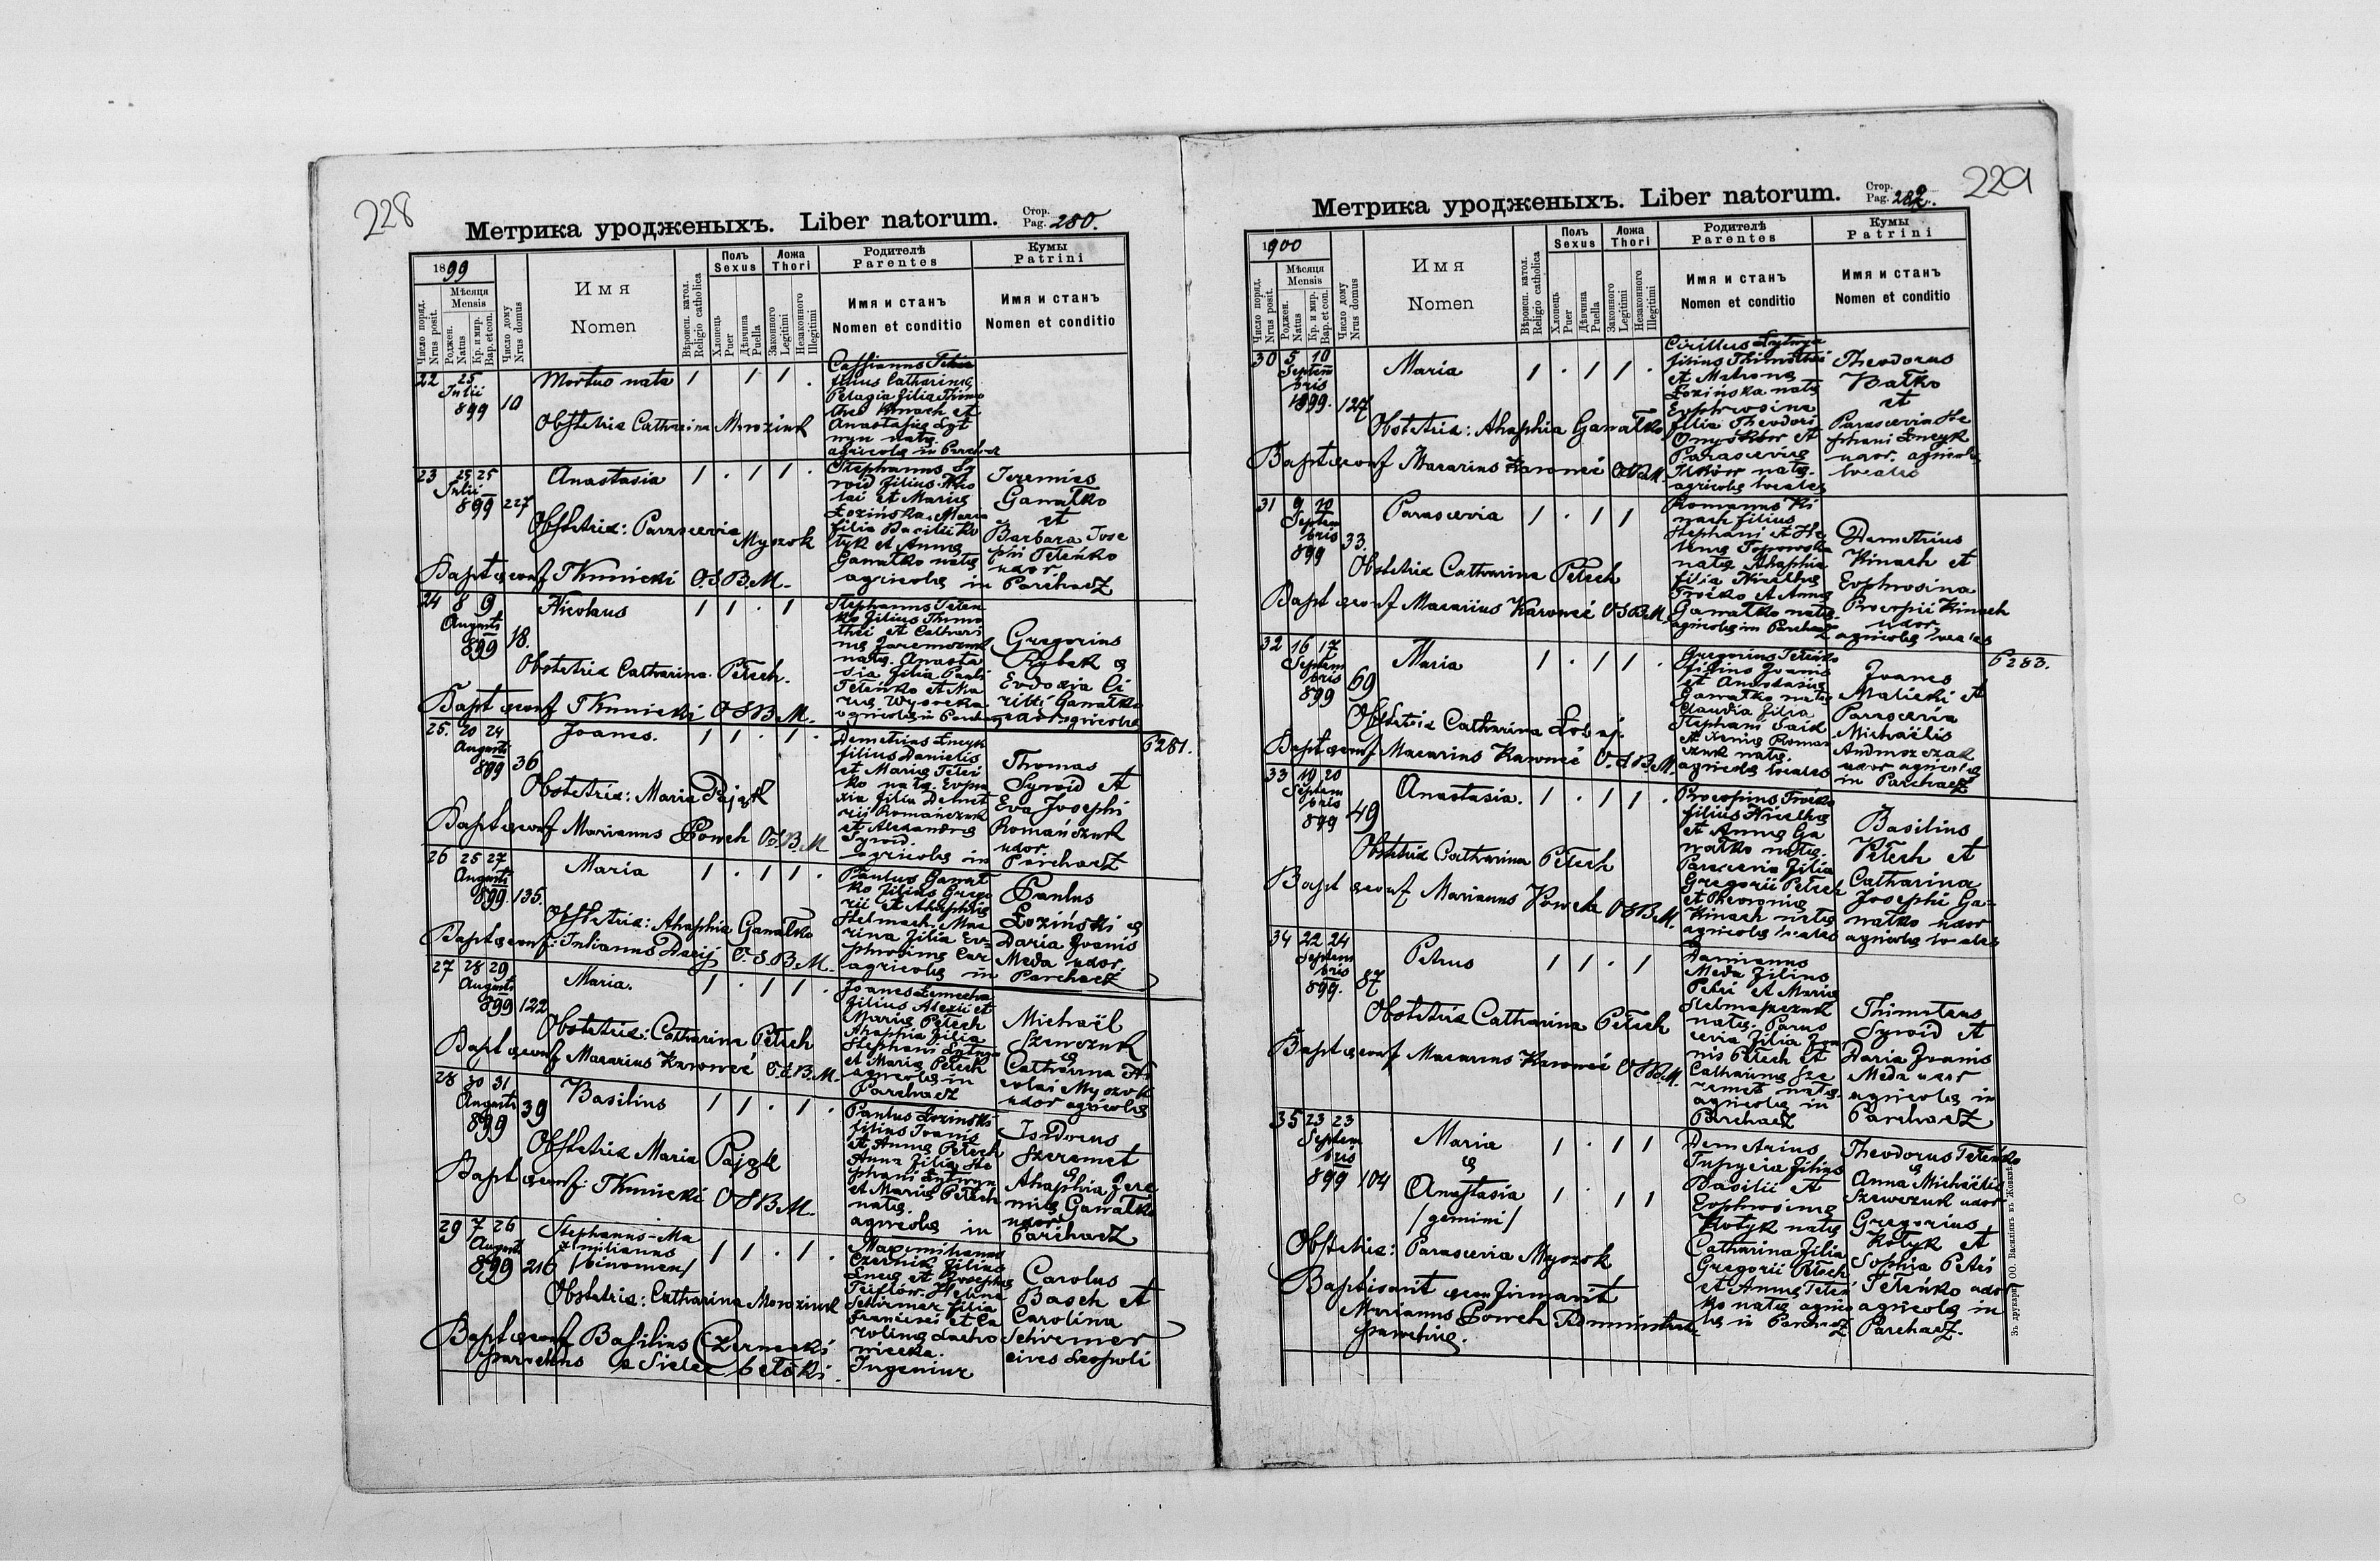 228
Метрика уродженыхъ. Liber natorum.
Стор.
Pag. 280.
1899
Число поряд.
Nrus posit.
Мѣсяця
Mensis
Роджен.
Natus
Кр. и мир.
Bap. et con.
Число дому
Nrus domus
Имя
Nomen
Вѣроисп. катол.
Religio catholica
Полъ
Sexus
Хлопець
Puer
Дѣвчина
Puella
Ложа
Thori
Законного
Legitimi
Незаконного
Illegitimi
Родителѣ
Parentes
Имя и станъ
Nomen et conditio
Кумы
Patrini
Имя и станъ
Nomen et conditio
22 25 Julii 899 10
Mortuo nata 1 1 1 .
Obstetrix Catharina Moroziuk
filius Catharinæ
Pelagia filia Thimo
thei Kinach et
Anastasiæ Lyt
wyn natæ
agricolæ in Parchacz
23 25 25 Julii 899 227
Anastasia 1 . 1 1 .
Obstetrix: Parascevia Myszok
Bapt. & conf. T Kmicicki O.S.B.M.
Stephanus Sy
woid filius Nico
lai et Mariæ
Łozińska. Maria
filia Basilii Ko
tyk et Annæ
Gawałko natæ
agricolæ in
Jeremias
Gawałko
et
Barbara Jose
phi Teleńko
uxor
Parchacz
24 8 9 Augusti 899 18.
Nicolaus 1 1 . 1
Obstetrix Catharina Petech.
Bapt & conf T Kmicicki O S B M.
Stephanus Teleń
ko filius Thimo
thei et Cathari
næ Jaremczuk
natæ. Anasta
sia filia Pauli
Teleńko et Ma
riæ Wysocka
agricolæ in Parchacz
Gregorius
Rybak &
Evdoxia Ci
rilli Gawałko
uxor agricolæ
25. 20 24 Augusti 899 36
Joanes. 1 1 . 1 .
Obstetrix: Maria Pająk
Bapt & conf Marianus Powch O.S.B.M
P 281.
Demetrius Łucyk
filius Danielis
et Mariæ Teleń
ko natæ. Evpra
xia filia Demet
rii Romańczuk
et Alexandræ
Sywoid.
agricolæ in
Thomas
Sywoid et
Eva Josephi
Romańczuk
uxor.
Parchacz
26 25 27 Augusti 899. 135.
Maria 1 . 1 1 .
Obstetrix: Ahaphia Gawałko
Bapt & conf: Julianus Dacij O.S.B.M.
Paulus Gawał
ko filius Grego
rii et Ahaphiæ
Stelmach. Ma
rina filia Ev=
phrosinæ Car
agricolæ in
Paulus
Łoziński &
Daria Joanis
Meda uxor.
Parchacz
27 28 29 Augusti 899 122
Maria. 1 . 1 1 .
Obstetrix: Catharina Petech
Bapt & conf Macarius Karowec O.S.B.M.
filius Alexii et
Mariæ Petech
Ahaphia filia
Stephani Lytwyn
et Mariæ Petech
agricolæ in
Parchacz
Michaël
Szewczuk
&
Catharina Ni
colai Myszok
uxor agricolæ
28 30 31 Augusti 899 39
Basilius 1 1 . 1 .
Obstetrix Maria Pająk
Bapt & conf: T Kmicicki O S B M.
Paulus Łoziński
filius Joanis
et Annæ Petech
Anna filia Ste
phani Lytwyn
et Mariæ Petech
natæ.
agricolæ in
Isidorus
Szeremet
&
Ahaphia Jere
miæ Gawałko
uxor
Parchacz
29 7 26 August 899 216
Stephanus-Ma
ximilianus
/binomen/ 1 1 . 1 .
Obstetrix: Catharina Moroziuk
Bapt & conf Basilius Czernecki
parochus a Sielec bełski.
Maximilianus
Czernik filius
Lucæ et Josephæ
Teiflów. Helena
Schirmer filia
Francisci et Ca
rolinæ Lacho
wiecka.
Ingeniur
Carolus
Basch et
Carolina
Schirmer
cives Leopoli
229
Метрика уродженыхъ. Liber natorum.
Стор.
Pag. 282.
1900
Число поряд.
Nrus posit.
Мѣсяця
Mensis
Роджен.
Natus
Кр. и мир.
Bap. et con.
Число дому
Nrus domus
Имя
Nomen
Вѣроисп. катол.
Religio catholica
Полъ
Sexus
Хлопець
Puer
Дѣвчина
Puella
Ложа
Thori
Законного
Legitimi
Незаконного
Illegitimi
Родителѣ
Parentes
Имя и станъ
Nomen et conditio
Кумы
Patrini
Имя и станъ
Nomen et conditio
30 5 10 Septem bris 1899. 127
Maria 1 . 1 1 .
Obstetrix: Ahaphia Gawałko
Bapt & conf Macarius Karowec O.S.B.M.
Cirillus Lytwyn
filius Thimothei
et Matronæ
Łozińska natæ
Evphrosina
filia Theodori
Onyśków et
Parasceviæ
Ilków natæ.
agricolæ locales
Theodorus
Bałko
et
Parascevia Ste
phani Łucyk
uxor. agricolæ
locales
31 9 10 Septem bris 899 33.
Parascevia 1 . 1 1
Obstetrix Catharina Petech
Bapt & conf Macarius Karowec O S B M.
Romanus Ki
nach filius
Stephani et He
lenæ Topowska
natæ Ahaphia
filia Nicolai
Troćko et Annæ
Gawałko natæ.
agricolæ in Parchacz
Demetrius
Kinach et
Evphrosina
Procopii Kinach
uxor
agricolæ locales
32 16 17 Septem bris 899 69
Maria 1 . 1 1 .
Obstetrix Catharina
Bapt & conf Macarius Karowec O.S.B.M.
P 283.
Gregorius Teleńko
filius Joanis
et Anastasiæ
Gawałko natæ
Claudia filia
Stephani Said
et Xeniæ Roman
czuk natæ.
agricolæ locales
Joanes
Malicki et
Parascevia
Michaëlis
Andruszczak
uxor agricolæ
in Parchacz
33 19 20 Septem bris 899 49
Anastasia. 1 . 1 1 .
Obstetrix Catharina Petech
Bapt & conf Marianus Powch O S B M.
Procopius Troćko
filius Nicolai
et Annæ Ga
wałko natæ.
Parascevia filia
Gregorii Petech
et Theodoniæ
Kinach natæ
agricolæ locales
Basilius
Petech et
Catharina
Josephi Ga-
wałko uxor
agricolæ locales
34 22 24 Septem bris 899. 87
Petrus 1 1 . 1
Obstetrix Catharina Petech
Bapt & conf Macarius Karowec O S B M.
Damianus
Meda filius
Petri et Mariæ
Stelmaszczuk
natæ. Paras
cevia filia Joa
nis Petech et
Catharinæ Sze
remet natæ.
agricolæ in
Parchacz
Thimoteus
Sywoid et
Daria Joanis
Meda uxor
agricolæ in
Parchacz
35 23 23 Septem bris 899 104
Maria 1 . 1 1
&
Anastasia 1 . 1 1
/gemini/
Obstetrix: Parascevia Myszok
Baptisavit & confirmavit
Marianus Powch Administrat.
parochiæ.
Demetrius
Tupycia filius
Basilii et
Evphrosinæ
Kotyk natæ
Catharina filia
Gregorii Petech
et Annæ Teleń
ko natæ agrico
læ in Parchacz
Theodorus Teleńko
&
Anna Michaëlis
Szewczuk uxor
Gregorius
Kotyk et
Sophia Petri
Teleńko uxor
agricolæ in
Parchacz.
Зъ друкарнѣ ОО. Василіянъ въ Жовквѣ.